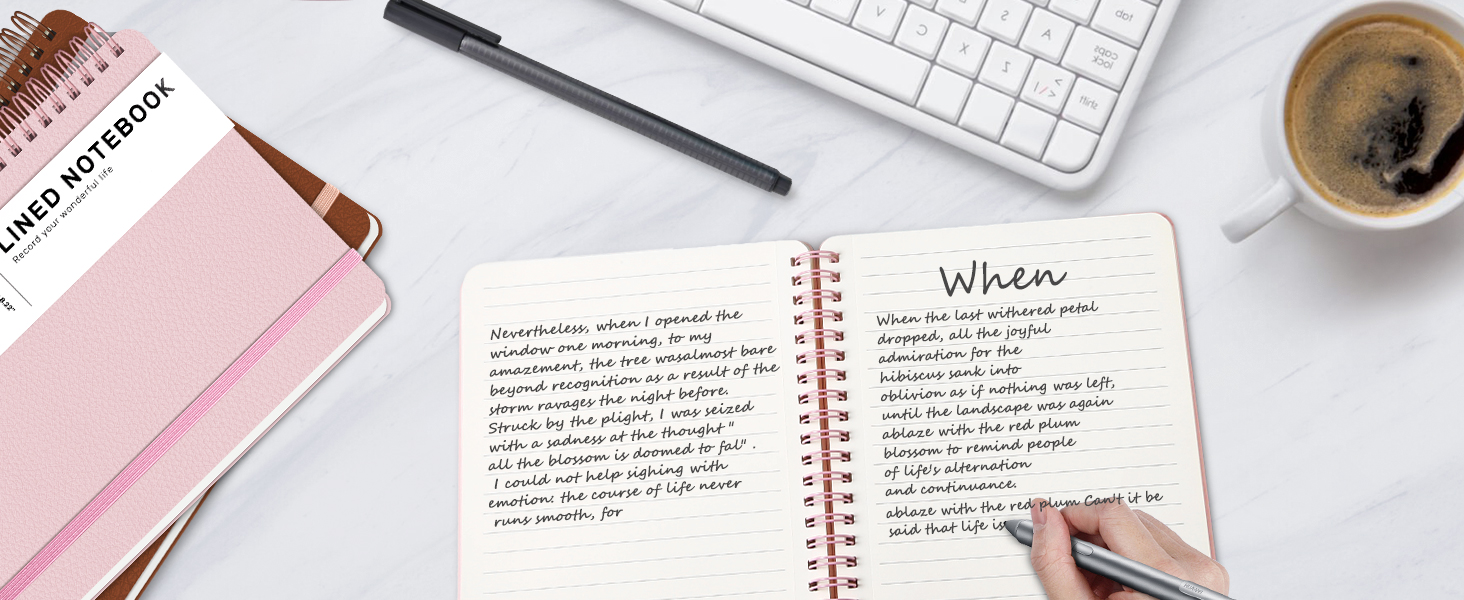 LINED NOTEBOOK
Record your wonderful life
8.32"
Nevertheless, when I opened the
window one morning, to my
amazement, the tree wasalmost bare
beyond recognition as a result of the
storm ravages the night before.
Struck by the plight, I was seized
with a sadness at the thought "
all the blossom is doomed to fal" .
I could not help sighing with
emotion: the course of life never
runs smooth, for
When
When the last withered petal
dropped, all the joyful
admiration for the
hibiscus sank into
oblivion as if nothing was left,
until the landscape was again
ablaze with the red plum
blossom to remind people
of life's alternation
and continuance.
ablaze with the red plum Can't it be
said that life is
V
C
X
Z
S
A
tab
caps
lock
shift